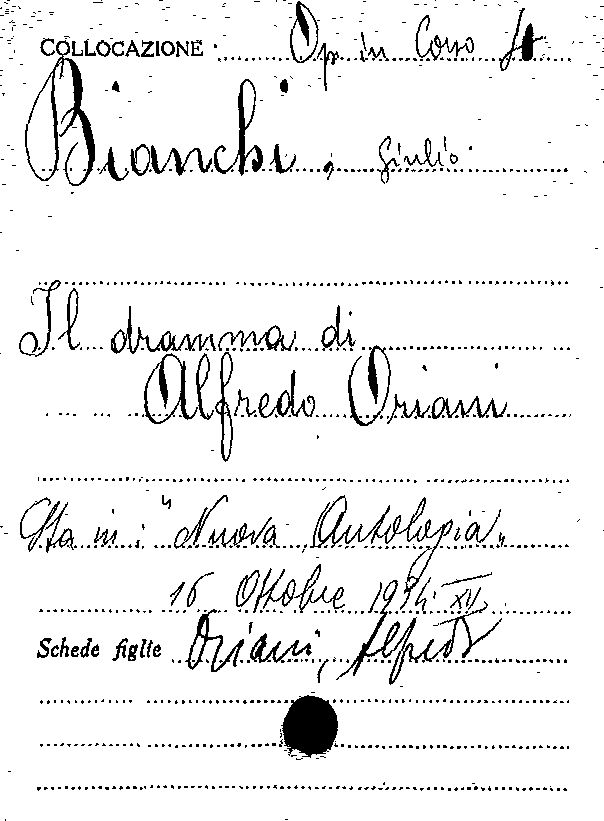 COLLOCAZIONE Op in Corso
Bianchi, Giulio
Il dramma di
Alfredo Oriani
Sta in: "Nuova Antologia"
16 Ottobre 1934 XII.
Schede figlie Oriani, Alfredo